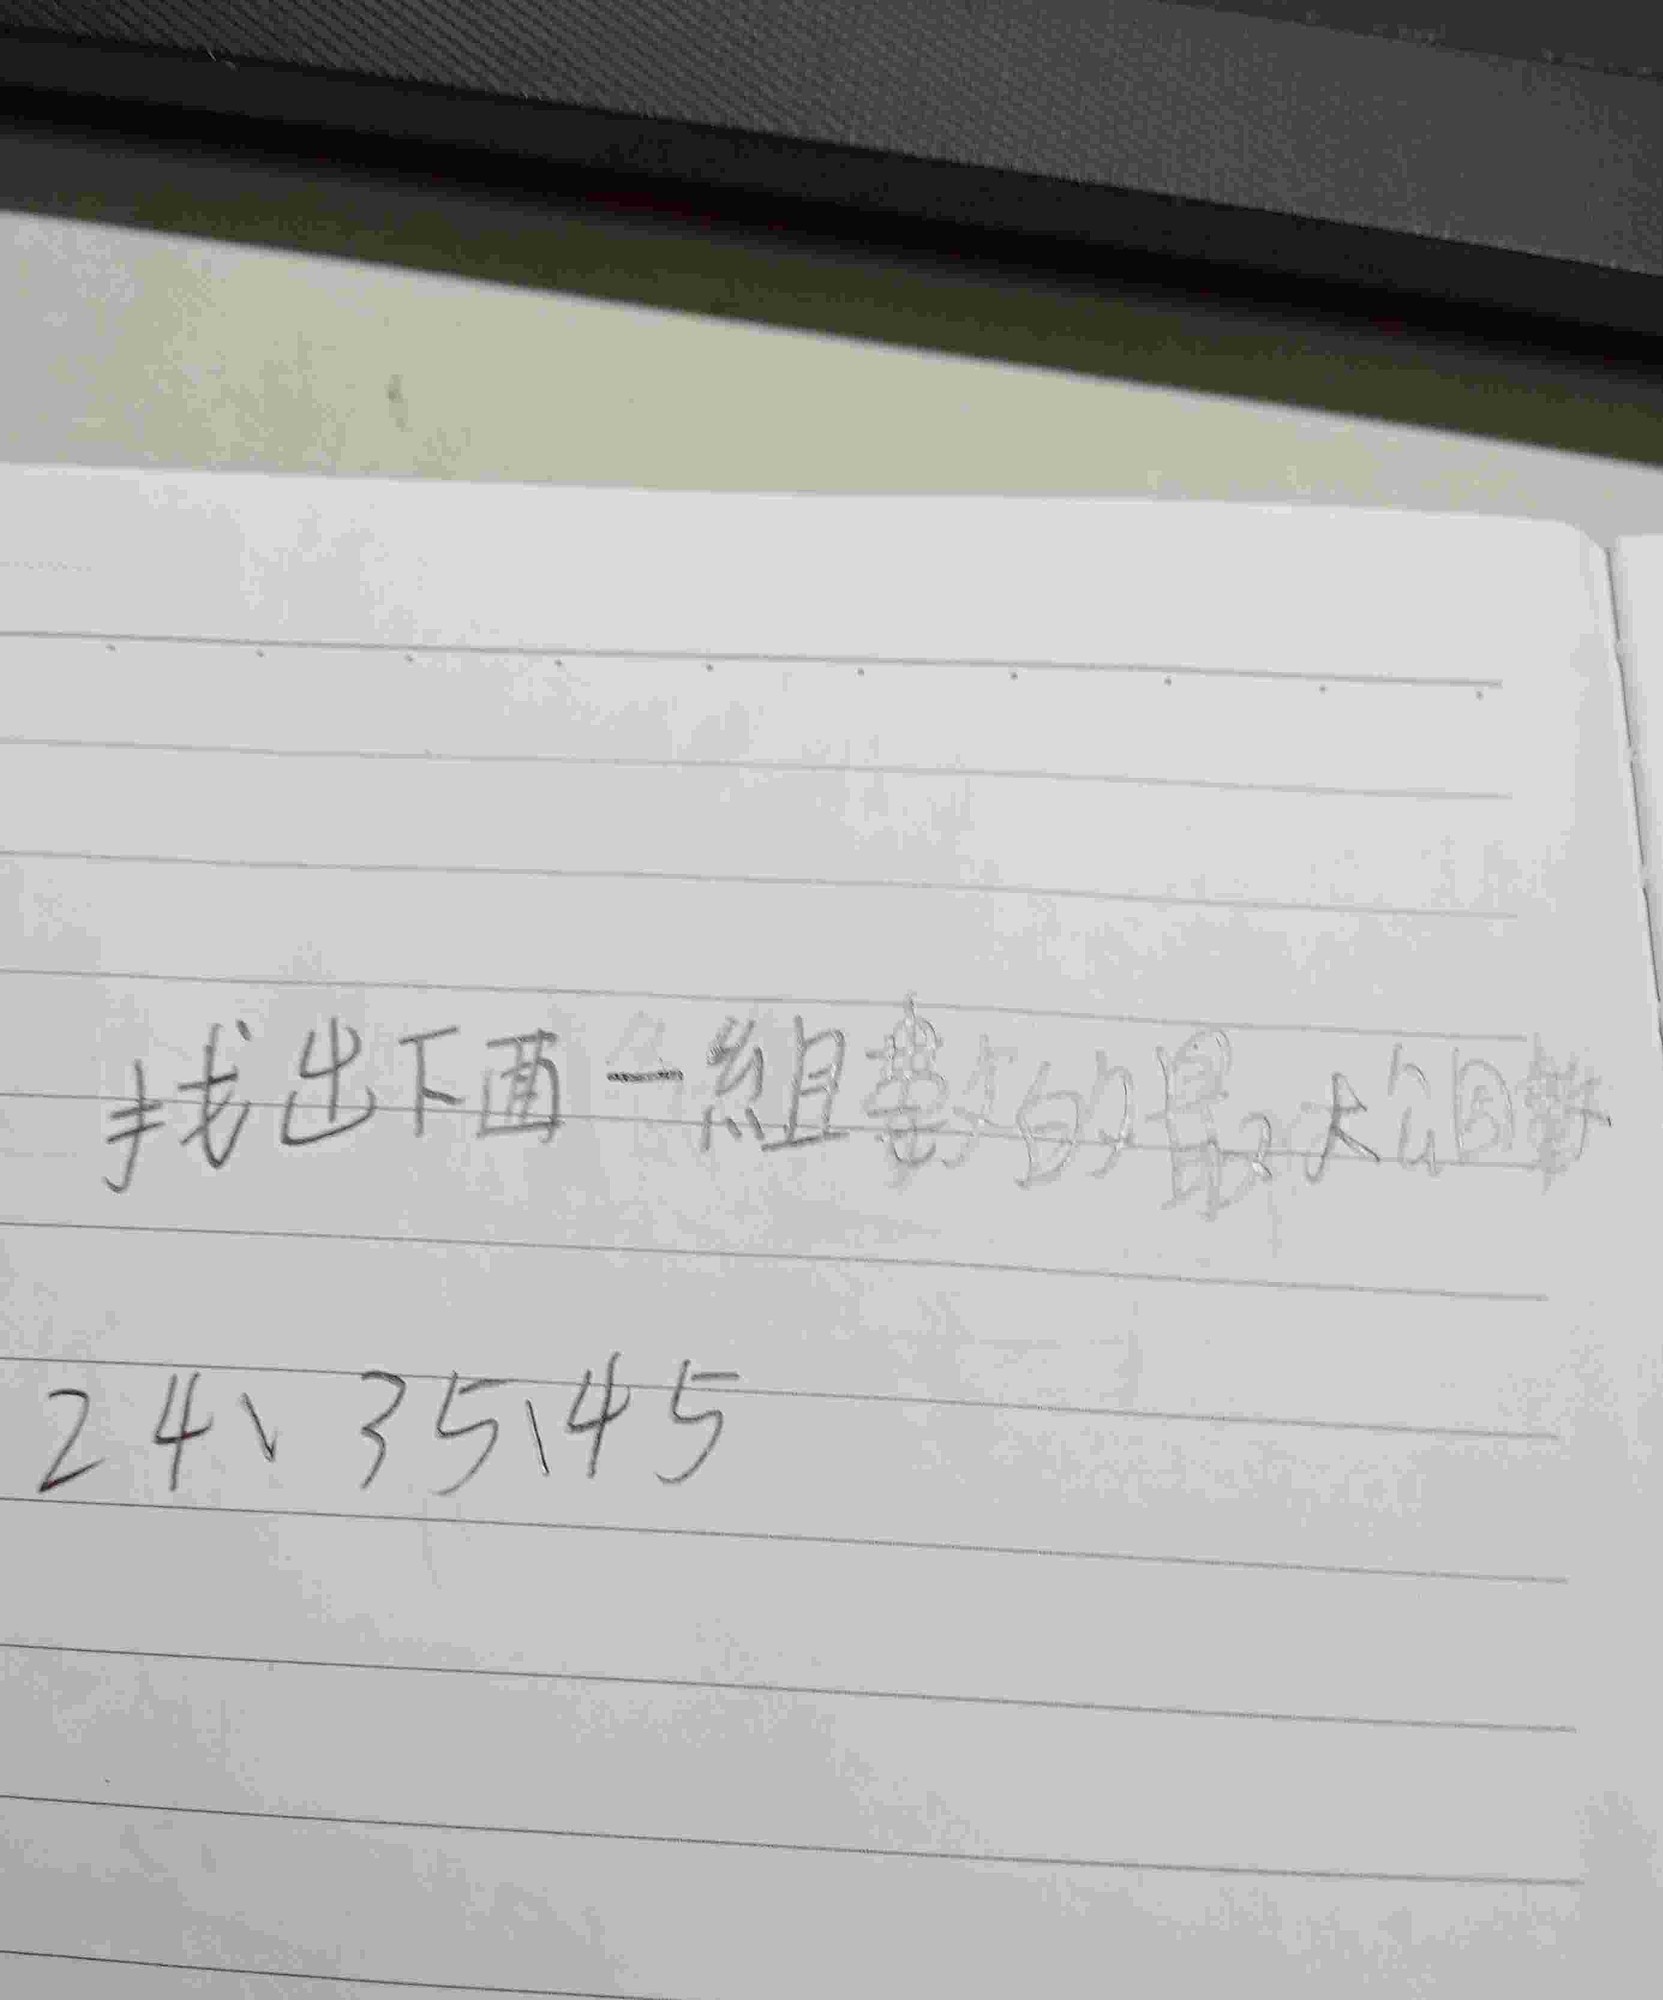 找出下面一組數的最大公因數
24、35、45